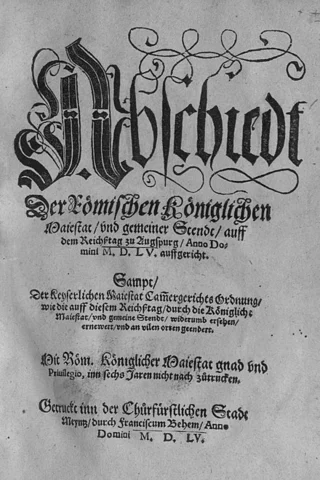 Abschiedt
Der Römischen Königlichen
Maiestat/ vnd gemeiner Stende/ auff
dem Reichßtag zu Augspurg/ Anno Do-
mini M. D. LV. auffgericht.
Sampt/
Der Keyserlichen Maiestat Cam̃ergerichts Ordnung/
wie die auff diesem Reichßtag/ durch die Königliche
Maiestat/ vnd gemeine Stende/ widerumb ersehen/
ernewert/ vnd an vilen orten geendert.
Mit Röm. Königlicher Maiestat gnad vnd
Priuilegio, inn sechs Jaren nicht nach zůtrucken.
Getruckt inn der Chůrfürstlichen Stadt
Meyntz/ durch Franciscum Behem/ Anno
Domini M. D. LV.